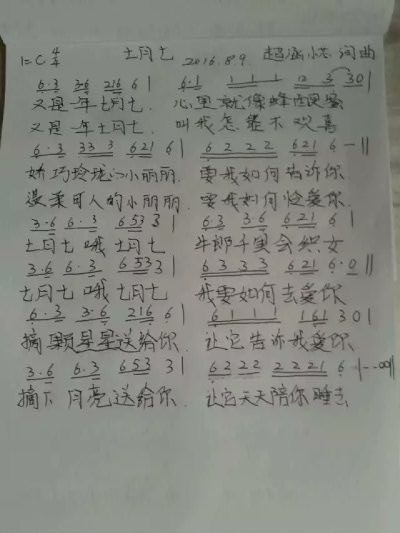 1=C 4/4 七月七 2016.8.9. 赵涵小芯 词曲
6·3 36 216 6 | 6·1 1 1 1 12 3 30 |
又是一年七月七. 心里就像蜂酿蜜
又是一年七月七. 叫我怎能不欢喜
6·3 33 3 621 6 | 6 2 2 2 621 6 -‖
娇巧玲珑小丽丽. 要我如何告诉你
温柔可人的小丽丽. 要我如何恋爱你.
3·6 6·3 653 3 | 6·3 3·6 621 6 |
七月七 哦 七月七 牛郎千里会织女
3·6 6·3 653 3 | 6 3 3 3 621 6·0 ‖
七月七 哦 七月七 我要如何去爱你
6·3 3·6 216 6 | 6 1 1 1 161 3 0 |
摘颗星星送给你. 让它告诉我爱你
3·6 6·3 653 3 | 62 22 2 2 21 6 -|--00‖
摘下月亮送给你. 让它天天陪你睡去